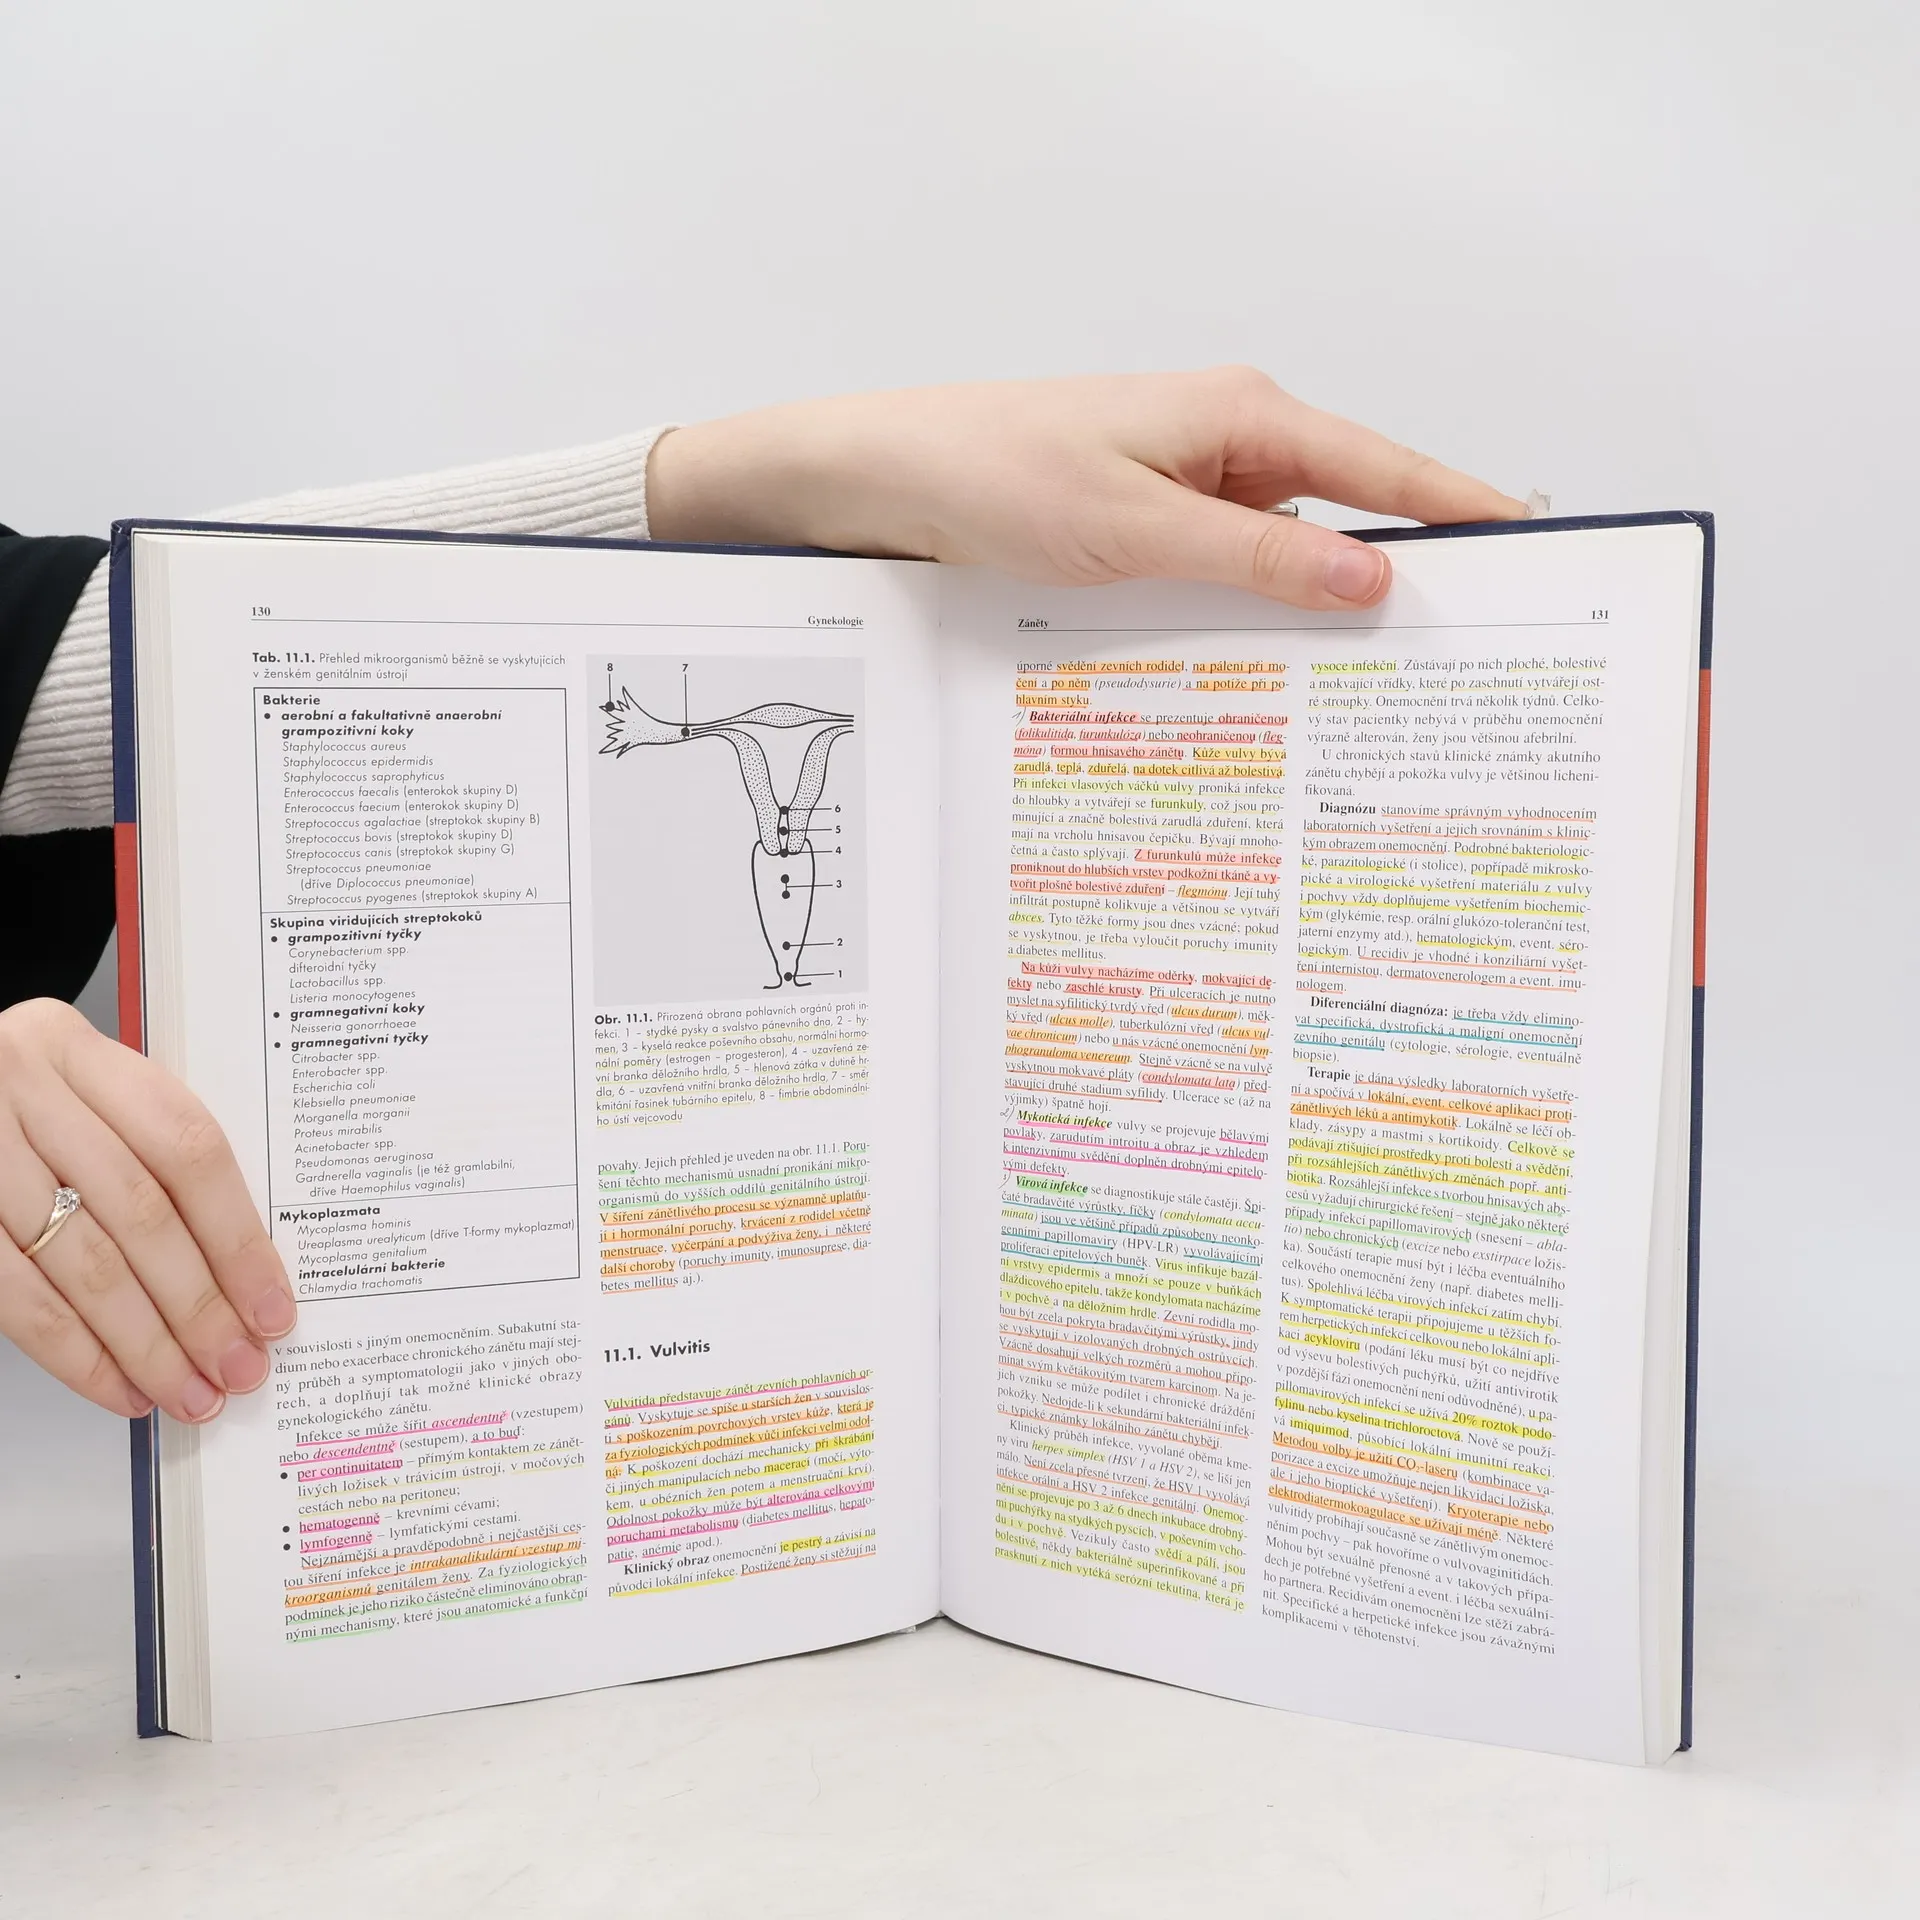 130
Gynekologie
Tab. 11.1. Přehled mikroorganismů běžně se vyskytujících
v ženském genitálním ústrojí
Bakterie
• aerobní a fakultativně anaerobní
grampozitivní koky
Staphylococcus aureus
Staphylococcus epidermidis
Staphylococcus saprophyticus
Enterococcus faecalis (enterokok skupiny D)
Enterococcus faecium (enterokok skupiny D)
Streptococcus agalactiae (streptokok skupiny B)
Streptococcus bovis (streptokok skupiny D)
Streptococcus canis (streptokok skupiny G)
Streptococcus pneumoniae
(dříve Diplococcus pneumoniae)
Streptococcus pyogenes (streptokok skupiny A)
Skupina viridujících streptokoků
• grampozitivní tyčky
Corynebacterium spp.
difteroidní tyčky
Lactobacillus spp.
Listeria monocytogenes
• gramnegativní koky
Neisseria gonorrhoeae
• gramnegativní tyčky
Citrobacter spp.
Enterobacter spp.
Escherichia coli
Klebsiella pneumoniae
Morganella morganii
Proteus mirabilis
Acinetobacter spp.
Pseudomonas aeruginosa
Gardnerella vaginalis (je též gramlabilní,
dříve Haemophilus vaginalis)
Mykoplazmata
Mycoplasma hominis
Ureaplasma urealyticum (dříve T-formy mykoplazmat)
Mycoplasma genitalium
intracelulární bakterie
Chlamydia trachomatis
v souvislosti s jiným onemocněním. Subakutní sta-
dium nebo exacerbace chronického zánětu mají stej-
ný průběh a symptomatologii jako v jiných obo-
rech, a doplňují tak možné klinické obrazy
gynekologického zánětu.
Infekce se může šířit ascendentně (vzestupem)
nebo descendentně (sestupem), a to buď:
• per continuitatem – přímým kontaktem ze zánět-
livých ložisek v trávicím ústrojí, v močových
cestách nebo na peritoneu;
• hematogenně – krevními cévami;
• lymfogenně – lymfatickými cestami.
Nejznámější a pravděpodobně i nejčastější ces-
tou šíření infekce je intrakanalikulární vzestup mi-
kroorganismů genitálem ženy. Za fyziologických
podmínek je jeho riziko částečně eliminováno obran-
nými mechanismy, které jsou anatomické a funkční
8
7
6
5
4
3
2
1
Obr. 11.1. Přirozená obrana pohlavních orgánů proti in-
fekci. 1 – stydké pysky a svalstvo pánevního dna, 2 – hy-
men, 3 – kyselá reakce poševního obsahu, normální hormo-
nální poměry (estrogen – progesteron), 4 – uzavřená ze-
vní branka děložního hrdla, 5 – hlenová zátka v dutině hr-
dla, 6 – uzavřená vnitřní branka děložního hrdla, 7 – směr
kmitání řasinek tubárního epitelu, 8 – fimbrie abdominální-
ho ústí vejcovodu
povahy. Jejich přehled je uveden na obr. 11.1. Poru-
šení těchto mechanismů usnadní pronikání mikro-
organismů do vyšších oddílů genitálního ústrojí.
V šíření zánětlivého procesu se významně uplatňu-
jí i hormonální poruchy, krvácení z rodidel včetně
menstruace, vyčerpání a podvýživa ženy, i některé
další choroby (poruchy imunity, imunosuprese, dia-
betes mellitus aj.).
11.1. Vulvitis
Vulvitida představuje zánět zevních pohlavních or-
gánů. Vyskytuje se spíše u starších žen v souvislos-
ti s poškozením povrchových vrstev kůže, která je
za fyziologických podmínek vůči infekci velmi odol-
ná. K poškození dochází mechanicky při škrábání
či jiných manipulacích nebo macerací (močí, výto-
kem, u obézních žen potem a menstruační krví).
Odolnost pokožky může být alterována celkovými
poruchami metabolismu (diabetes mellitus, hepato-
patie, anémie apod.).
Klinický obraz onemocnění je pestrý a závisí na
původci lokální infekce. Postižené ženy si stěžují na
Záněty
131
úporné svědění zevních rodidel, na pálení při mo-
čení a po něm (pseudodysurie) a na potíže při po-
hlavním styku.
1) Bakteriální infekce se prezentuje ohraničenou
(folikulitida, furunkulóza) nebo neohraničenou (fleg-
móna) formou hnisavého zánětu. Kůže vulvy bývá
zarudlá, teplá, zduřelá, na dotek citlivá až bolestivá.
Při infekci vlasových váčků vulvy proniká infekce
do hloubky a vytvářejí se furunkuly, což jsou pro-
minující a značně bolestivá zarudlá zduření, která
mají na vrcholu hnisavou čepičku. Bývají mnoho-
četná a často splývají. Z furunkulů může infekce
proniknout do hlubších vrstev podkožní tkáně a vy-
tvořit plošně bolestivé zduření – flegmónu. Její tuhý
infiltrát postupně kolikvuje a většinou se vytváří
absces. Tyto těžké formy jsou dnes vzácné; pokud
se vyskytnou, je třeba vyloučit poruchy imunity
a diabetes mellitus.
Na kůži vulvy nacházíme oděrky, mokvající de-
fekty nebo zaschlé krusty. Při ulceracích je nutno
myslet na syfilitický tvrdý vřed (ulcus durum), měk-
ký vřed (ulcus molle), tuberkulózní vřed (ulcus vul-
vae chronicum) nebo u nás vzácné onemocnění lym-
phogranuloma venereum. Stejně vzácně se na vulvě
vyskytnou mokvavé pláty (condylomata lata) před-
stavující druhé stadium syfilidy. Ulcerace se (až na
výjimky) špatně hojí.
2) Mykotická infekce vulvy se projevuje bělavými
povlaky, zarudutím introitu a obraz je vzhledem
k intenzivnímu svědění doplněn drobnými epitelo-
vými defekty.
3) Virová infekce se diagnostikuje stále častěji. Špi-
čaté bradavčité výrůstky, fíčky (condylomata accu-
minata) jsou ve většině případů způsobeny neonko-
genními papillomaviry (HPV-LR) vyvolávajícími
proliferaci epitelových buněk. Virus infikuje bazál-
ní vrstvy epidermis a množí se pouze v buňkách
dlaždicového epitelu, takže kondylomata nacházíme
i v pochvě a na děložním hrdle. Zevní rodidla mo-
hou být zcela pokryta bradavčitými výrůstky, jindy
se vyskytují v izolovaných drobných ostrůvcích.
Vzácně dosahují velkých rozměrů a mohou připo-
mínat svým květákovitým tvarem karcinom. Na je-
jich vzniku se může podílet i chronické dráždění
pokožky. Nedojde-li k sekundární bakteriální infek-
ci, typické známky lokálního zánětu chybějí.
Klinický průběh infekce, vyvolané oběma kme-
ny viru herpes simplex (HSV 1 a HSV 2), se liší jen
málo. Není zcela přesné tvrzení, že HSV 1 vyvolává
infekce orální a HSV 2 infekce genitální. Onemoc-
nění se projevuje po 3 až 6 dnech inkubace drobný-
mi puchýřky na stydkých pyscích, v poševním vcho-
du i v pochvě. Vezikuly často svědí a pálí, jsou
bolestivé, někdy bakteriálně superinfikované a při
prasknutí z nich vytéká serózní tekutina, která je
vysoce infekční. Zůstávají po nich ploché, bolestivé
a mokvající vřídky, které po zaschnutí vytvářejí ost-
ré stroupky. Onemocnění trvá několik týdnů. Celko-
vý stav pacientky nebývá v průběhu onemocnění
výrazně alterován, ženy jsou většinou afebrilní.
U chronických stavů klinické známky akutního
zánětu chybějí a pokožka vulvy je většinou licheni-
fikovaná.
Diagnózu stanovíme správným vyhodnocením
laboratorních vyšetření a jejich srovnáním s klinic-
kým obrazem onemocnění. Podrobné bakteriologic-
ké, parazitologické (i stolice), popřípadě mikrosko-
pické a virologické vyšetření materiálu z vulvy
i pochvy vždy doplňujeme vyšetřením biochemic-
kým (glykémie, resp. orální glukózo-toleranční test,
jaterní enzymy atd.), hematologickým, event. séro-
logickým. U recidiv je vhodné i konziliární vyšet-
ření internistou, dermatovenerologem a event. imu-
nologem.
Diferenciální diagnóza: je třeba vždy elimino-
vat specifická, dystrofická a maligní onemocnění
zevního genitálu (cytologie, sérologie, eventuálně
biopsie).
Terapie je dána výsledky laboratorních vyšetře-
ní a spočívá v lokální, event. celkové aplikaci proti-
zánětlivých léků a antimykotik. Lokálně se léčí ob-
klady, zásypy a mastmi s kortikoidy. Celkově se
podávají ztišující prostředky proti bolesti a svědění,
při rozsáhlejších zánětlivých změnách popř. anti-
biotika. Rozsáhlejší infekce s tvorbou hnisavých abs-
cesů vyžadují chirurgické řešení – stejně jako některé
případy infekcí papillomavirových (snesení – abla-
tio) nebo chronických (excize nebo exstirpace ložis-
ka). Součástí terapie musí být i léčba eventuálního
celkového onemocnění ženy (např. diabetes melli-
tus). Spolehlivá léčba virových infekcí zatím chybí.
K symptomatické terapii připojujeme u těžších fo-
rem herpetických infekcí celkovou nebo lokální apli-
kaci acykloviru (podání léku musí být co nejdříve
od výsevu bolestivých puchýřků, užití antivirotik
v pozdější fázi onemocnění není odůvodněné), u pa-
pillomavirových infekcí se užívá 20% roztok podo-
fylinu nebo kyselina trichloroctová. Nově se použí-
vá imiquimod, působící lokální imunitní reakci.
Metodou volby je užití CO2-laseru (kombinace va-
porizace a excize umožňuje nejen likvidaci ložiska,
ale i jeho bioptické vyšetření). Kryoterapie nebo
elektrodiatermokoagulace se užívají méně. Některé
vulvitidy probíhají současně se zánětlivým onemoc-
něním pochvy – pak hovoříme o vulvovaginitidách.
Mohou být sexuálně přenosné a v takových přípa-
dech je potřebné vyšetření a event. i léčba sexuální-
ho partnera. Recidivám onemocnění lze stěží zabrá-
nit. Specifické a herpetické infekce jsou závažnými
komplikacemi v těhotenství.